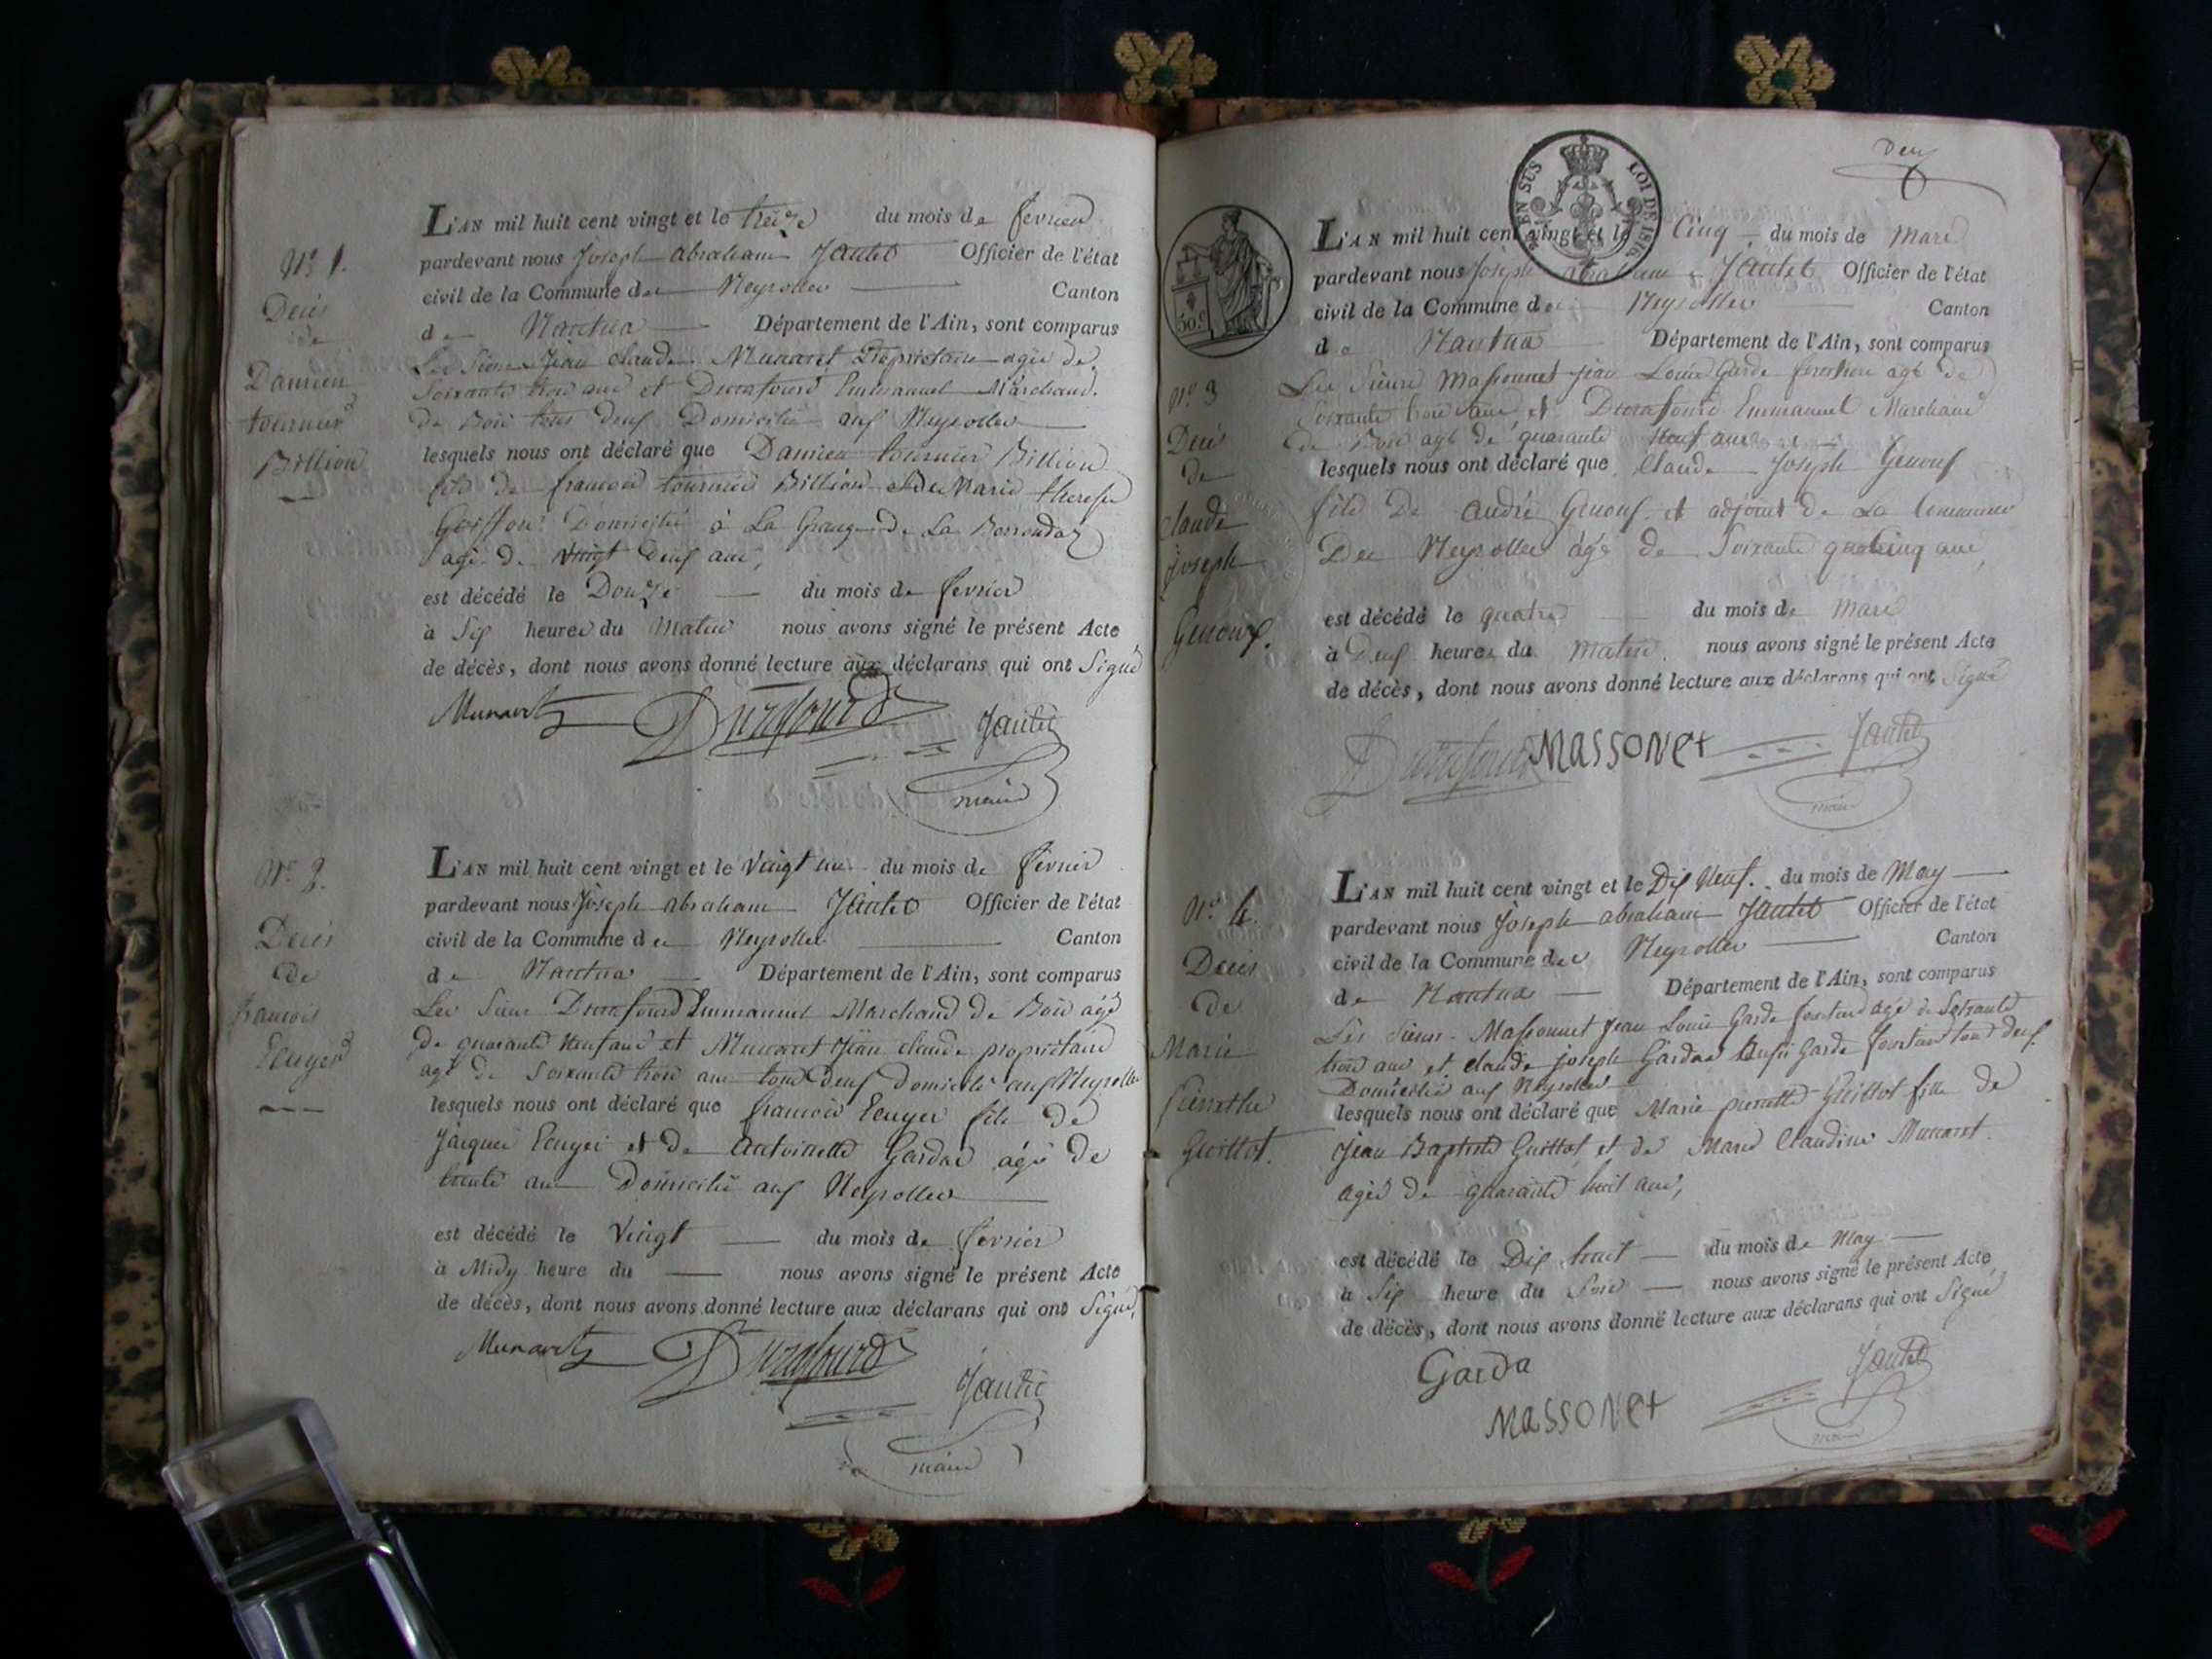 N.º 1.
Decés
de
Damien
tournier
Billion
L'AN mil huit cent vingt et le treize du mois de fevrier
pardevant nous Joseph abraham Jantet Officier de l'état
civil de la Commune des Neyrolles Canton
de Nantua Département de l'Ain, sont comparus
Les Sieurs Jean claude Munaret Proprietaire agée de
Soixante trois ans et Durafourd Emmanuel Marchand
de Bois tous deux Domicilié aux Neyrolles
lesquels nous ont déclaré que Damien tournier Billion
fils de francois tournier Billion et De Marie therese
Domicilié à La Grange de La
agé de vingt deux ans,
est décédé le Douze du mois de fevrier
à Six heures du Matin nous avons signé le présent Acte
de décès, dont nous avons donné lecture aux déclarans qui ont Signé
Munaret Durafourd Jantet
maire
N.º 2.
Decés
de
francois
Ecuyer
L'AN mil huit cent vingt et le vingt un du mois de fevrier
pardevant nous Joseph abraham Jantet Officier de l'état
civil de la Commune des Neyrolles Canton
de Nantua Département de l'Ain, sont comparus
Les Sieurs Durafourd Emmanuel Marchand de Bois agé
de quarante neuf ans et Munaret Jean claude proprietaire
agé de Soixante trois ans tous Deux Domicilié aux Neyrolles
lesquels nous ont déclaré que francois Ecuyer fils de
Jacques Ecuyer et de Antoinette Gardaz agé de
trente ans Domicilié aux Neyrolles
est décédé le Vingt du mois de fevrier
à Midy heure du nous avons signé le présent Acte
de décès, dont nous avons donné lecture aux déclarans qui ont Signé,
Munaret Durafourd
Jantet
maire
deux
EN SUS LOI DE 1816
50 c
N.º 3
Decés
de
claude
joseph
Genouf.
L'AN mil huit cent vingt et le Cinq du mois de Mars
pardevant nous Joseph abraham Jantet Officier de l'état
civil de la Commune des Neyrolles Canton
de Nantua Département de l'Ain, sont comparus
Les Sieurs Massonnet jean Louis Garde forestier agé de
Soixante trois ans et Durafourd Emmanuel Marchand
de Bois agé de quarante neuf ans
lesquels nous ont déclaré que Claude Joseph Genouf
fils De andré Genouf et adjoint de La Commune
Des Neyrolles agé de Soixante cinq ans,
est décédé le quatre du mois de Mars
à Deux heures du Matin nous avons signé le présent Acte
de décès, dont nous avons donné lecture aux déclarans qui ont Signé
Durafourd Massonet Jantet
maire
N.º 4.
Decés
de
Marie
Pierrette
Guittot.
L'AN mil huit cent vingt et le Dix Neuf. du mois de May
pardevant nous Joseph abraham Jantet Officier de l'état
civil de la Commune des Neyrolles Canton
de Nantua Département de l'Ain, sont comparus
Les Sieurs Massonnet Jean Louis Garde forestier agé de Soixante
trois ans et claude joseph Gardaz aussi Garde forestier tous deux
Domicilié aux Neyrolles
lesquels nous ont déclaré que Marie pierrette Guittot fille de
Jean Baptiste Guittot et de Marie Claudine Munaret.
agée de quarante huit ans,
est décédé le Dix huit du mois de May
à Six heure du Soir nous avons signé le présent Acte
de décès, dont nous avons donné lecture aux déclarans qui ont Signé
Garda Jantet
Massonet maire